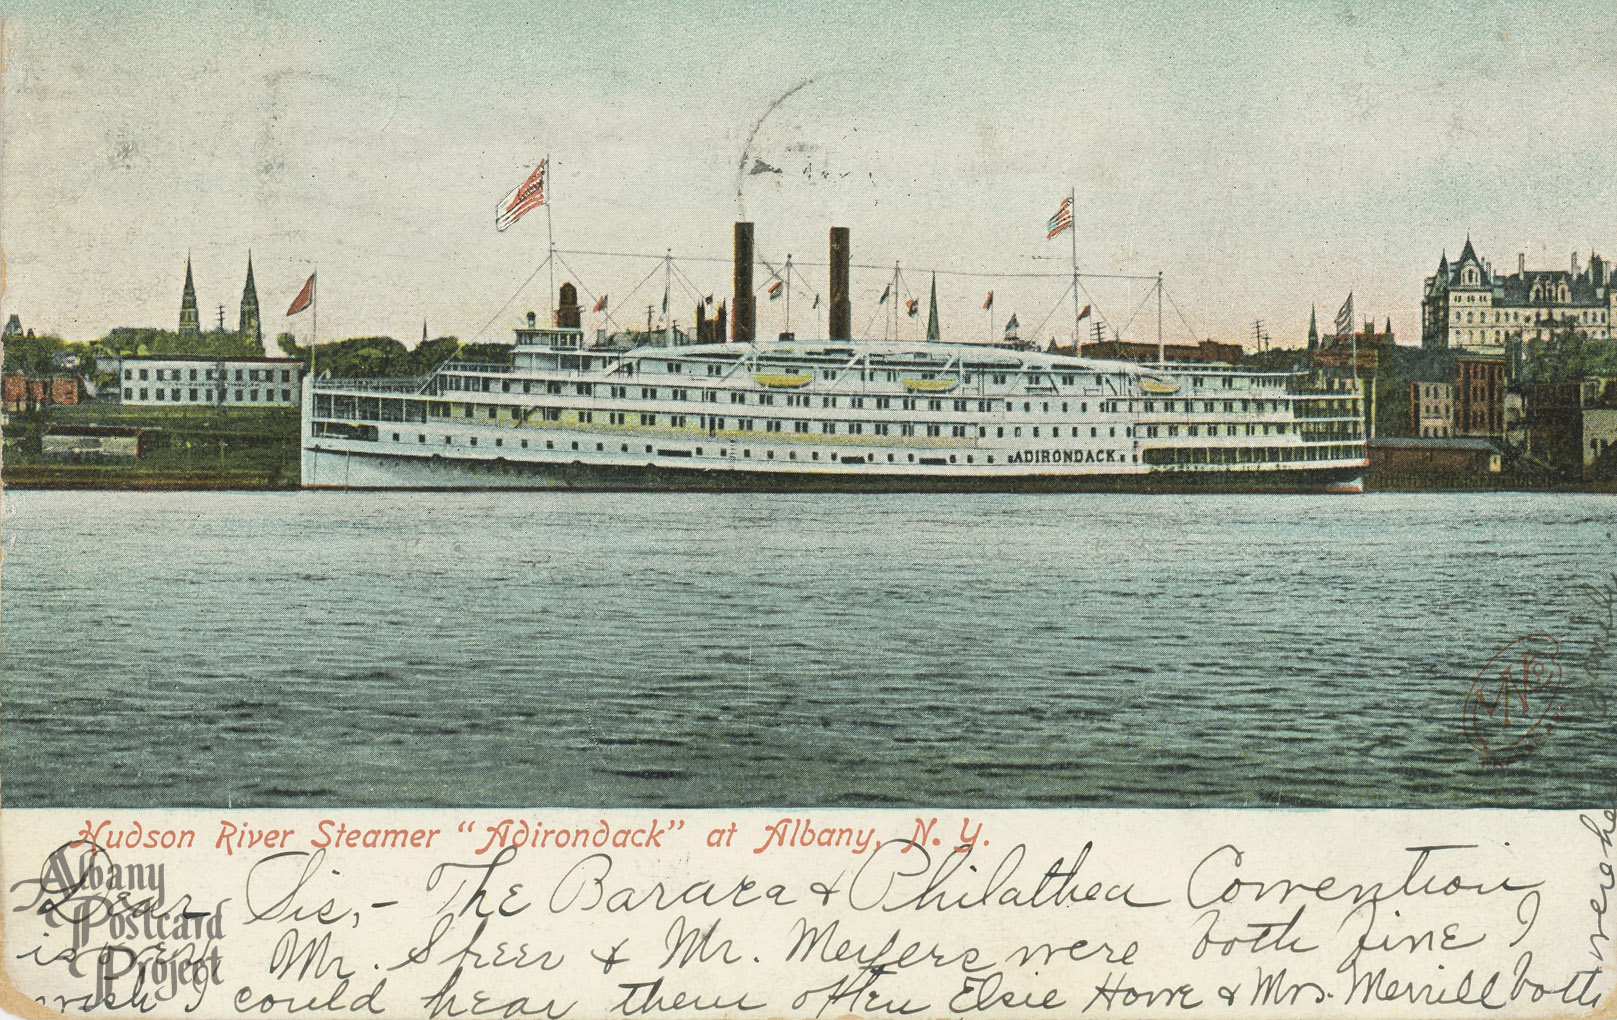 ADIRONDACK
Hudson River Steamer "Adirondack" at Albany, N. Y.
Albany
Postcard
Project
Dear Sis,- The Baraca & Philathea Convention
is over. Mr. Speer & Mr. Meyers were both fine I
wish I could hear them often Elsie Howe & Mrs. Merrill both
were here